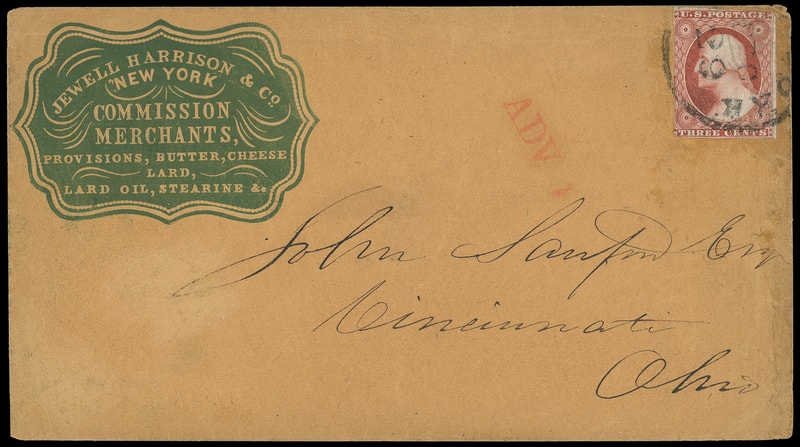 JEWELL HARRISON & Co.
NEW YORK
COMMISSION
MERCHANTS,
PROVISIONS, BUTTER, CHEESE
LARD,
LARD OIL, STEARINE &c.
U.S. POSTAGE
THREE CENTS.
ADV
John Sanford Esq
Cincinnati
Ohio